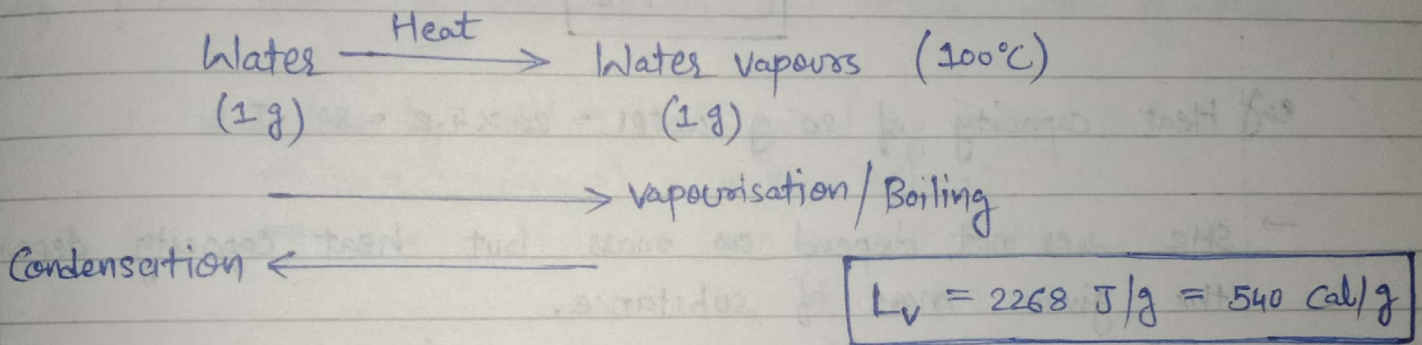 Heat
Water → Water vapours (100°C)
(1g) (1g)
→ vapourisation / Boiling
Condensation ←
Lv = 2268 J/g = 540 Cal/g